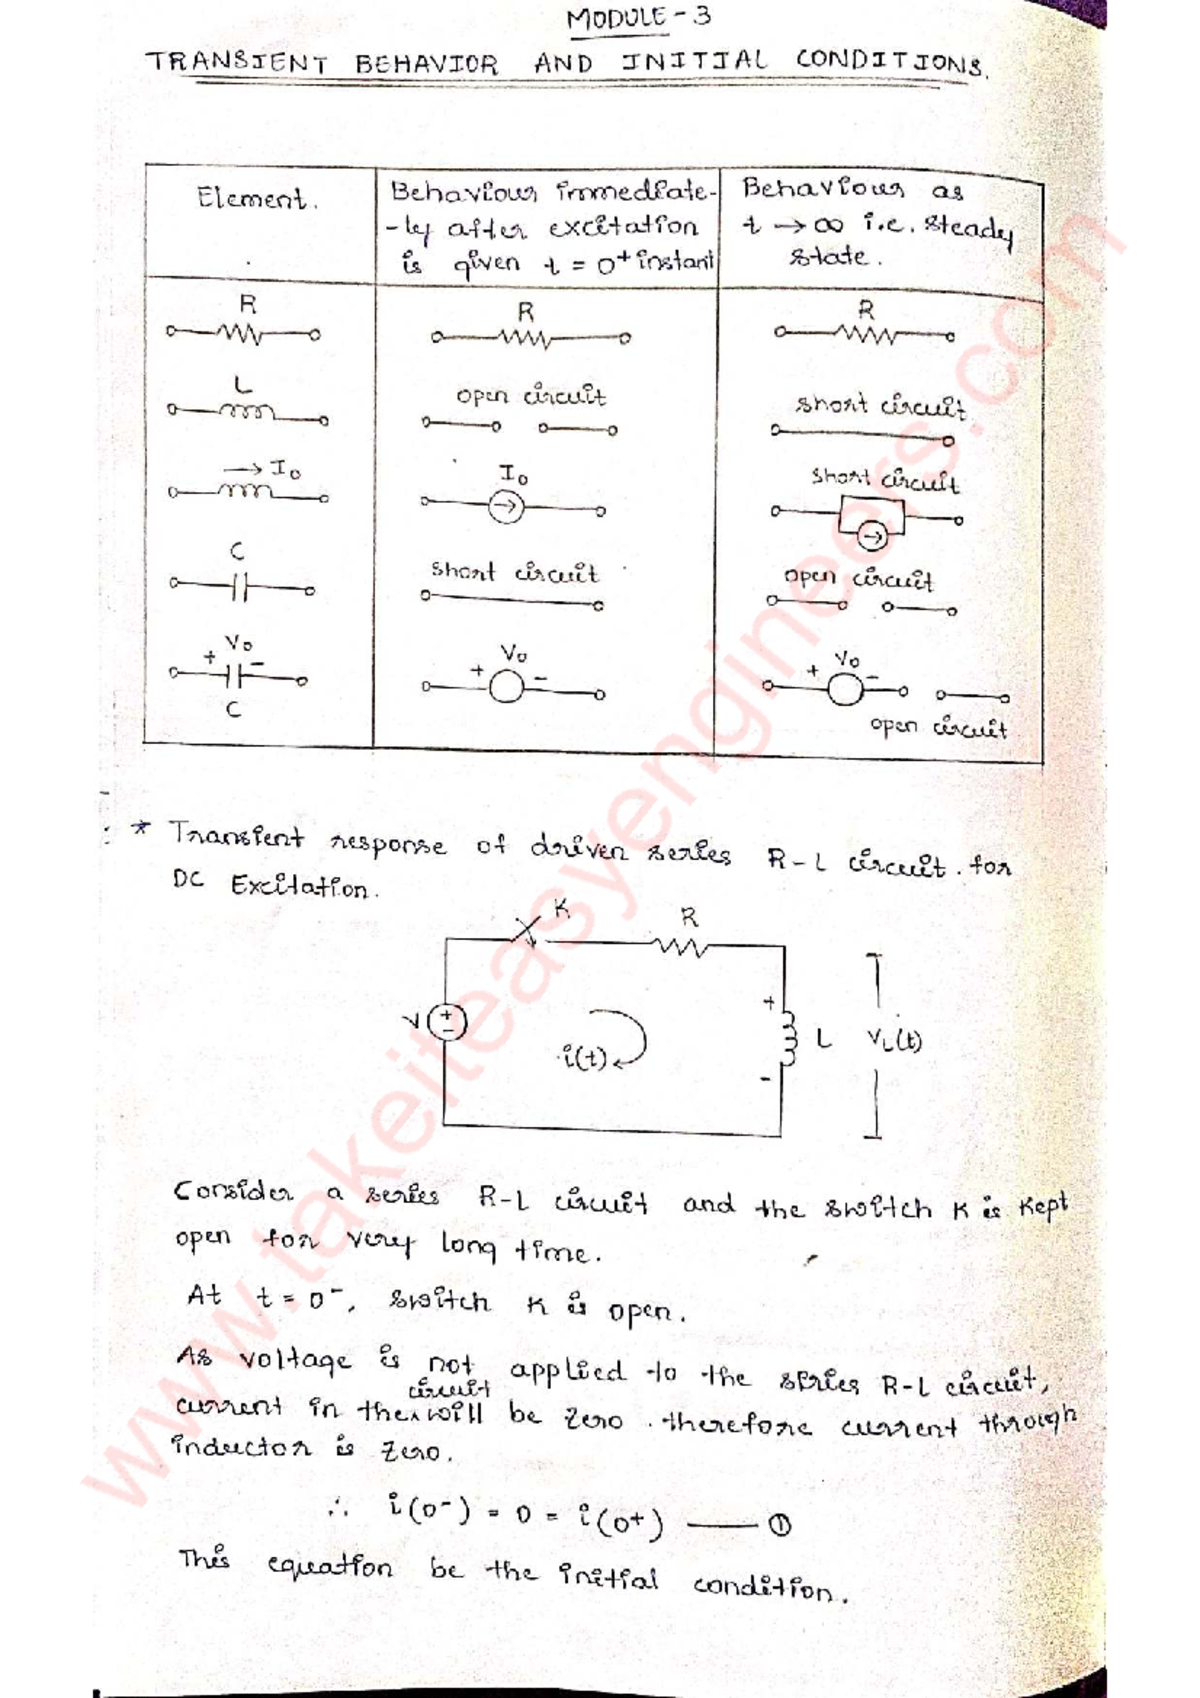 MODULE - 3
TRANSIENT BEHAVIOR AND INITIAL CONDITIONS.
Element.
Behaviour immediate-
-ly after excitation
is given t = 0+ instant
Behaviour as
t → ∞ i.e. steady
state.
R
R
R
L
open circuit
short circuit
→ I₀
I₀
short circuit
C
short circuit
open circuit
V₀
+ -
C
V₀
+ -
V₀
+ -
open circuit
* Transient response of driven series R-L circuit. for
DC Excitation.
K
R
V
+
-
i(t)
+
-
L
VL(t)
Consider a series R-L circuit and the switch K is kept
open for very long time.
At t = 0⁻, switch K is open.
As voltage is not applied to the series R-L circuit,
circuit
current in the ‸ will be zero. therefore current through
inductor is zero.
∴ i(0⁻) = 0 = i(0⁺) —— ①
This equation be the initial condition.
www.takeiteasyengineers.com